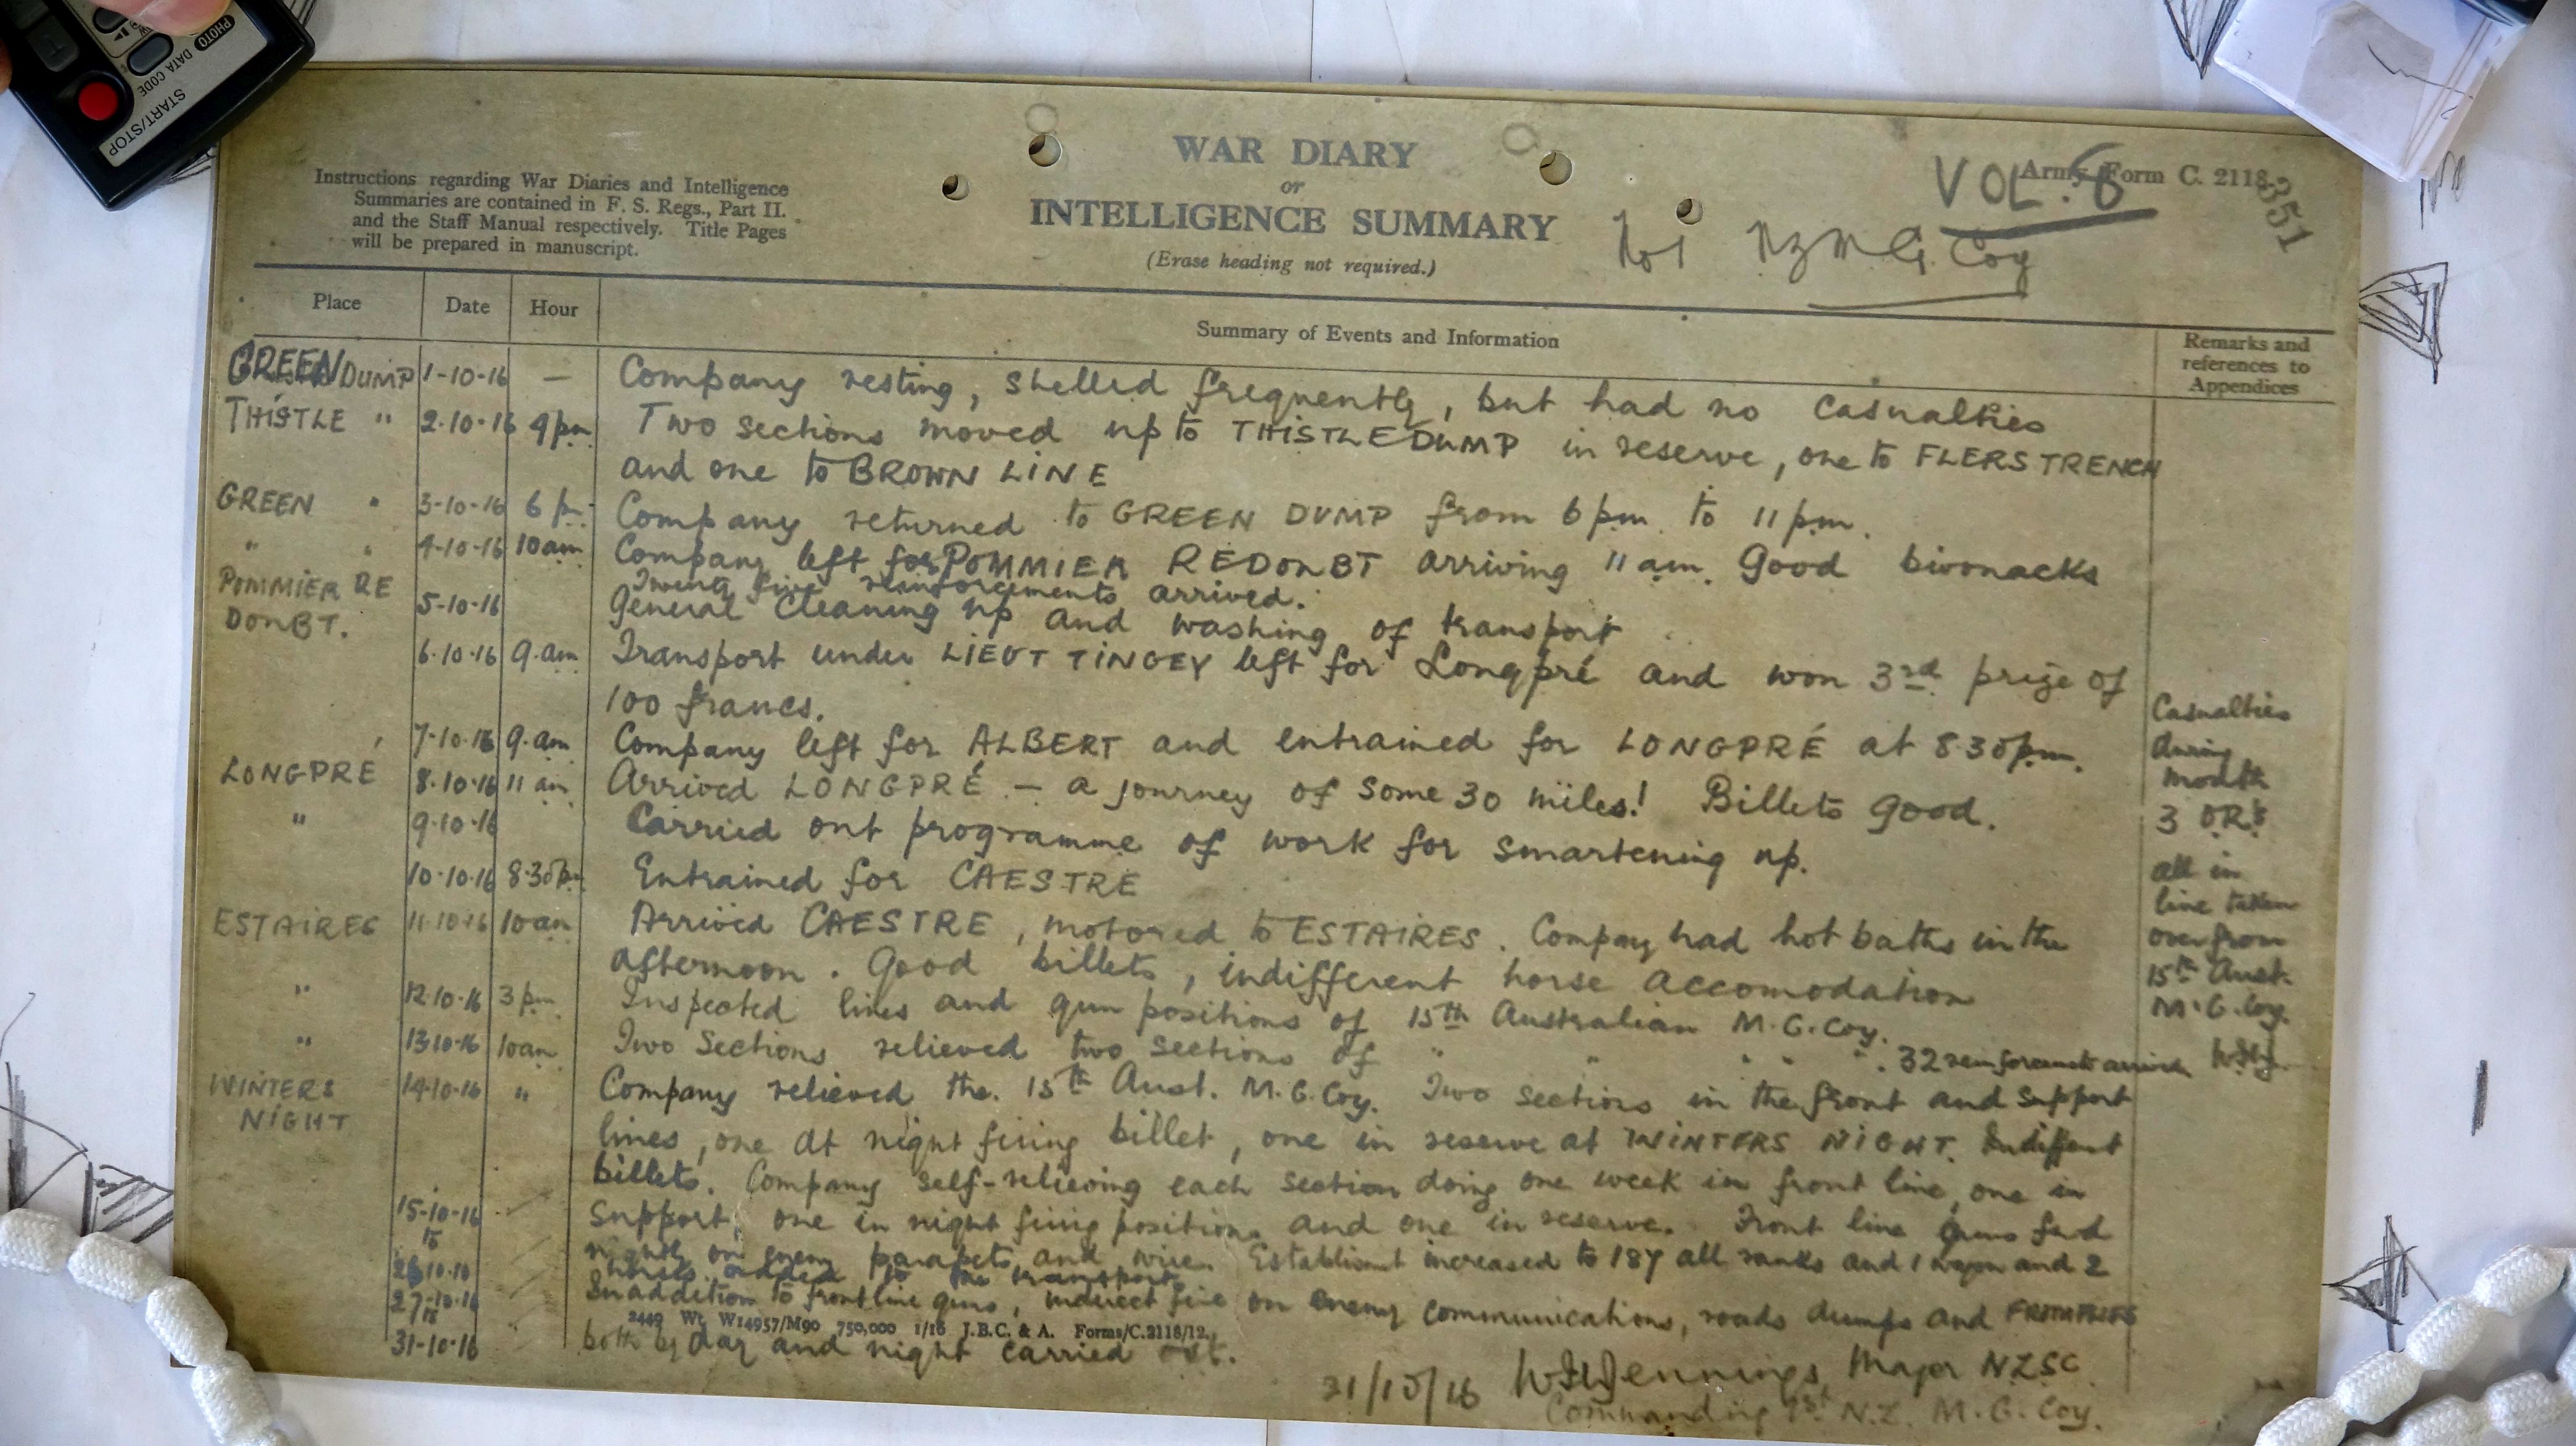 START/STOP
DATA CODE
PHOTO
Instructions regarding War Diaries and Intelligence
Summaries are contained in F. S. Regs., Part II.
and the Staff Manual respectively. Title Pages
will be prepared in manuscript.
WAR DIARY
or
INTELLIGENCE SUMMARY
(Erase heading not required.)
Army Form C. 2118.
VOL. 6
351
No 1 NZ M G. Coy
Place Date Hour Summary of Events and Information Remarks and references to Appendices
GREEN DUMP 1-10-16 — Company resting, shelled frequently, but had no casualties
THISTLE " 2.10.16 4 pm Two sections moved up to THISTLE DUMP in reserve, one to FLERS TRENCH
and one to BROWN LINE
GREEN " 3-10-16 6 p. Company returned to GREEN DUMP from 6 pm. to 11 pm.
" " 4-10-16 10 am Company left for POMMIER REDOUBT arriving 11 am. Good bivouacks
Twenty five reinforcements arrived.
POMMIER RE 5-10-16 General cleaning up and washing of transport
DOUBT.
6.10.16 9.am Transport under LIEUT TINGEY left for Longpré and won 3rd prize of
100 francs.
7-10-16 9.am Company left for ALBERT and entrained for LONGPRÉ at 8.30 pm.
LONGPRÉ 8.10.16 11 am Arrived LONGPRÉ – a journey of some 30 miles! Billets good.
" 9.10.16 Carried out programme of work for smartening up.
10.10.16 8.30 pm Entrained for CAESTRE
ESTAIRES 11.10.16 10 am Arrived CAESTRE, motored to ESTAIRES. Company had hot baths in the
afternoon. Good billets, indifferent horse accomodation
" 12.10.16 3 pm Inspected lines and gun positions of 15th Australian M.G. Coy.
" 13.10.16 10 am Two Sections relieved two sections of " " " " ". 32 reinforcements arrived
WINTERS 14.10.16 " Company relieved the. 15th Aust. M.G. Coy. Two sections in the front and support
NIGHT
lines, one at night firing billet, one in reserve at WINTERS NIGHT. Indifferent
billets. Company self-relieving each section doing one week in front line, one in
15-10-16 support, one in night firing positions and one in reserve. Front line guns fired
to
26.10.16 nightly on enemy parapets and wire. Establishment increased to 187 all ranks and 1 wagon and 2
horses added to the transport.
27-10-16 In addition to front line guns, indirect fire on enemy communications, roads dumps and FROMELLES
to
2449 Wt. W14957/M90 750,000 1/16 J.B.C. & A. Forms/C.2118/12.
31-10-16 both by day and night carried out.
Casualties
during
month
3 OR's
all in
line taken
over from
15th Aust.
M.G. Coy.
31/10/16 Jennings, Major NZSC
Commanding 1st N.Z. M.G. Coy.